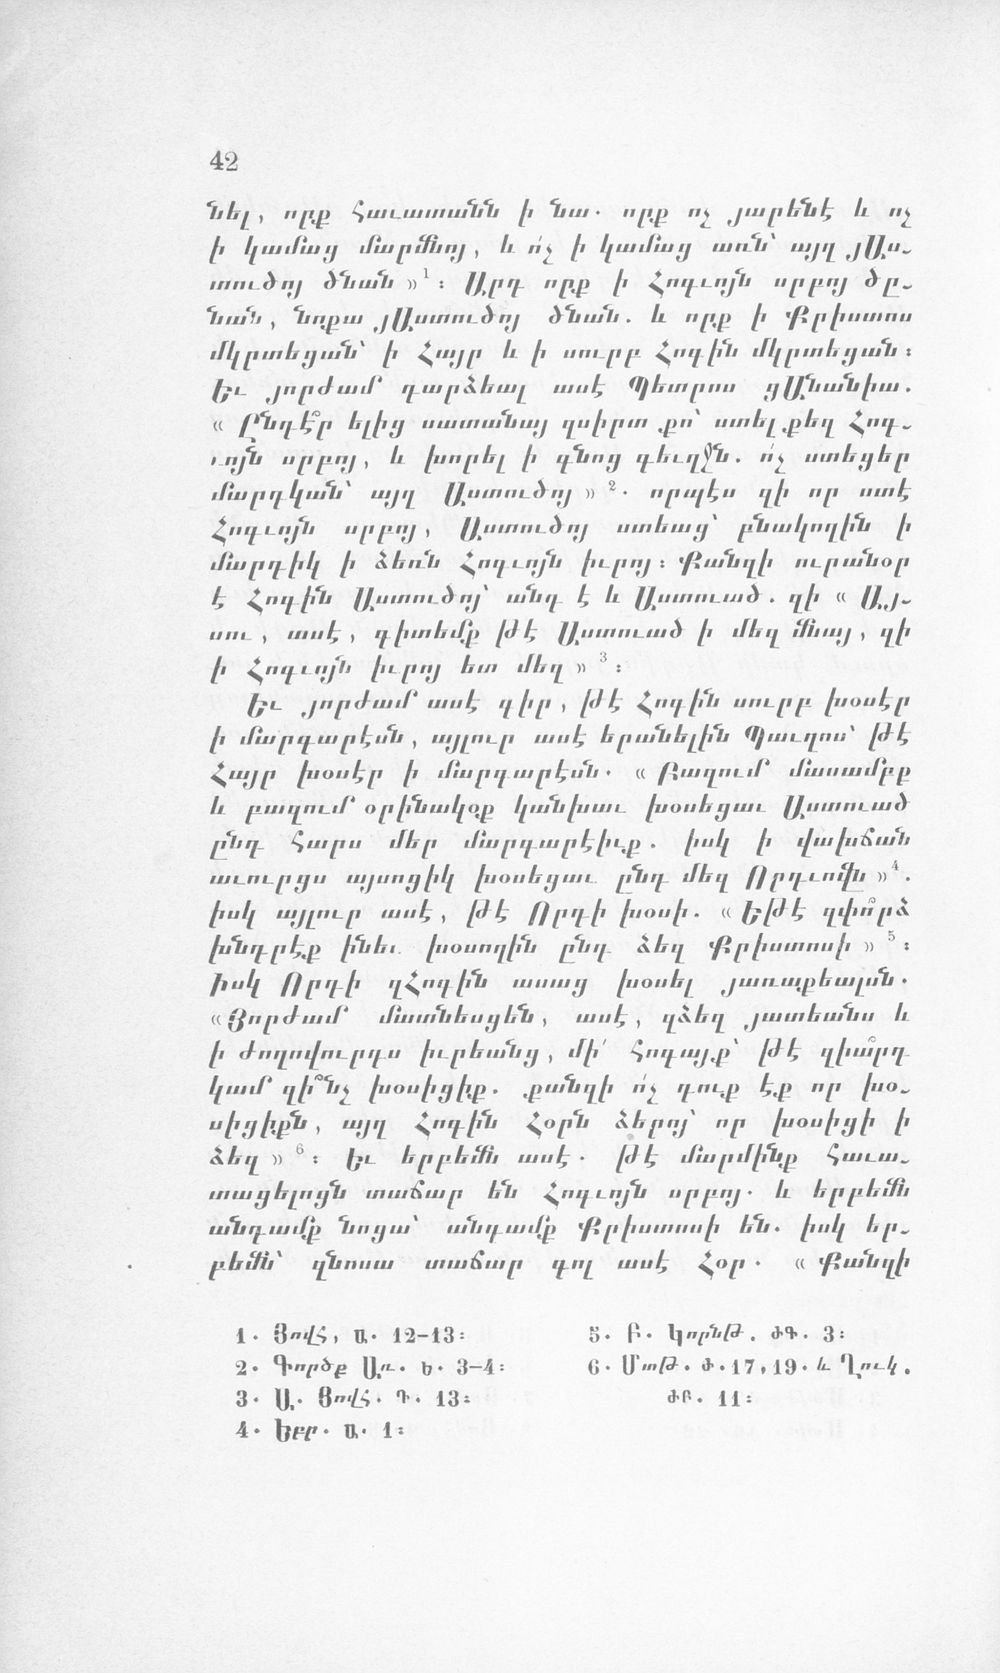 42
նել, որք հաւատանն ի նա. որք ոչ յարենէ և ոչ
ի կամաց մարմնոյ, և ո՛չ ի կամաց առն՝ այղ յԱս-
տուծոյ ծնան »1։ Արդ որք ի Հոգւոյն սրբոյ ծը-
նան, նոքա յԱստուծոյ ծնան. և որք ի Քրիստոս
մկրտեցան՝ ի Հայր և ի սուրբ Հոգին մկրտեցան։
Եւ յորժամ դարձեալ ասէ Պետրոս ցԱնանիա.
« Ընդէ՞ր ելից սատանայ զսիրտ քո՝ ստել քեղ Հոգ-
ւոյն սրբոյ, և խորել ի գնոց գեւղջն. ո՛չ ստեցեր
մարդկան՝ այղ Աստուծոյ » 2. որպէս զի որ ստէ
Հոգւոյն սրբոյ, Աստուծոյ ստեաց՝ բնակողին ի
մարդիկ ի ձեռն Հոգւոյն իւրոյ։ Քանզի ուրանօր
է Հոգին Աստուծոյ՝ անդ է և Աստուած. զի « Այ-
սու, ասէ, գիտեմք թէ Աստուած ի մեզ մնայ, զի
ի Հոգւոյն իւրոյ ետ մեզ » 3։
Եւ յորժամ ասէ գիր, թէ Հոգին սուրբ խօսէր
ի մարգարէսն, այլուր ասէ երանելին Պաւղոս՝ թէ
Հայր խօսէր ի մարդարէսն. « Բազում մասամբք
և բազում օրինակօք կանխաւ խօսեցաւ Աստուած
ընդ հարս մեր մարդարէիւք. իսկ ի վախճան
աւուրցս այսոցիկ խօսեցաւ ընդ մեզ Որդւովն »4.
իսկ այլուր ասէ, թէ Որդի խօսի. « Եթէ զփո՞րձ
խնդրէք ինեւ խօսողին ընդ ձեզ Քրիստոսի » 5։
Իսկ Որդի զՀոգին ասաց խօսել յառաքեալսն.
«Յորժամ մատնեսցեն, ասէ, զձեզ յատեանս և
ի ժողովուրդս իւրեանց, մի՛ հոգայք՝ թէ զիա՞րդ
կամ զի՞նչ խօսիցիք. քանզի ո՛չ դուք էք որ խօ-
սիցիքն, այղ Հոգին Հօրն ձերոյ՝ որ խօսիցի ի
ձեզ » 6։ Եւ երբեմն ասէ. թէ մարմինք հաւա-
տացելոցն տաճար են Հոգւոյն սրբոյ. և երբեմն
անդամք նոցա՝ անդամք Քրիստոսի են. իսկ եր-
բեմն՝ զնոսա տաճար գոլ ասէ Հօր. « Քանզի
1. Յովհ, Ա. 12-13։
2. Գործք Առ. Ե. 3-4։
3. Ա. Յովհ. Դ. 13։
4. Եբր. Ա. 1։
5. Բ. Կորնթ. ԺԳ. 3։
6. Մատթ. Ժ.17,19. և Ղուկ.
ԺԲ. 11։